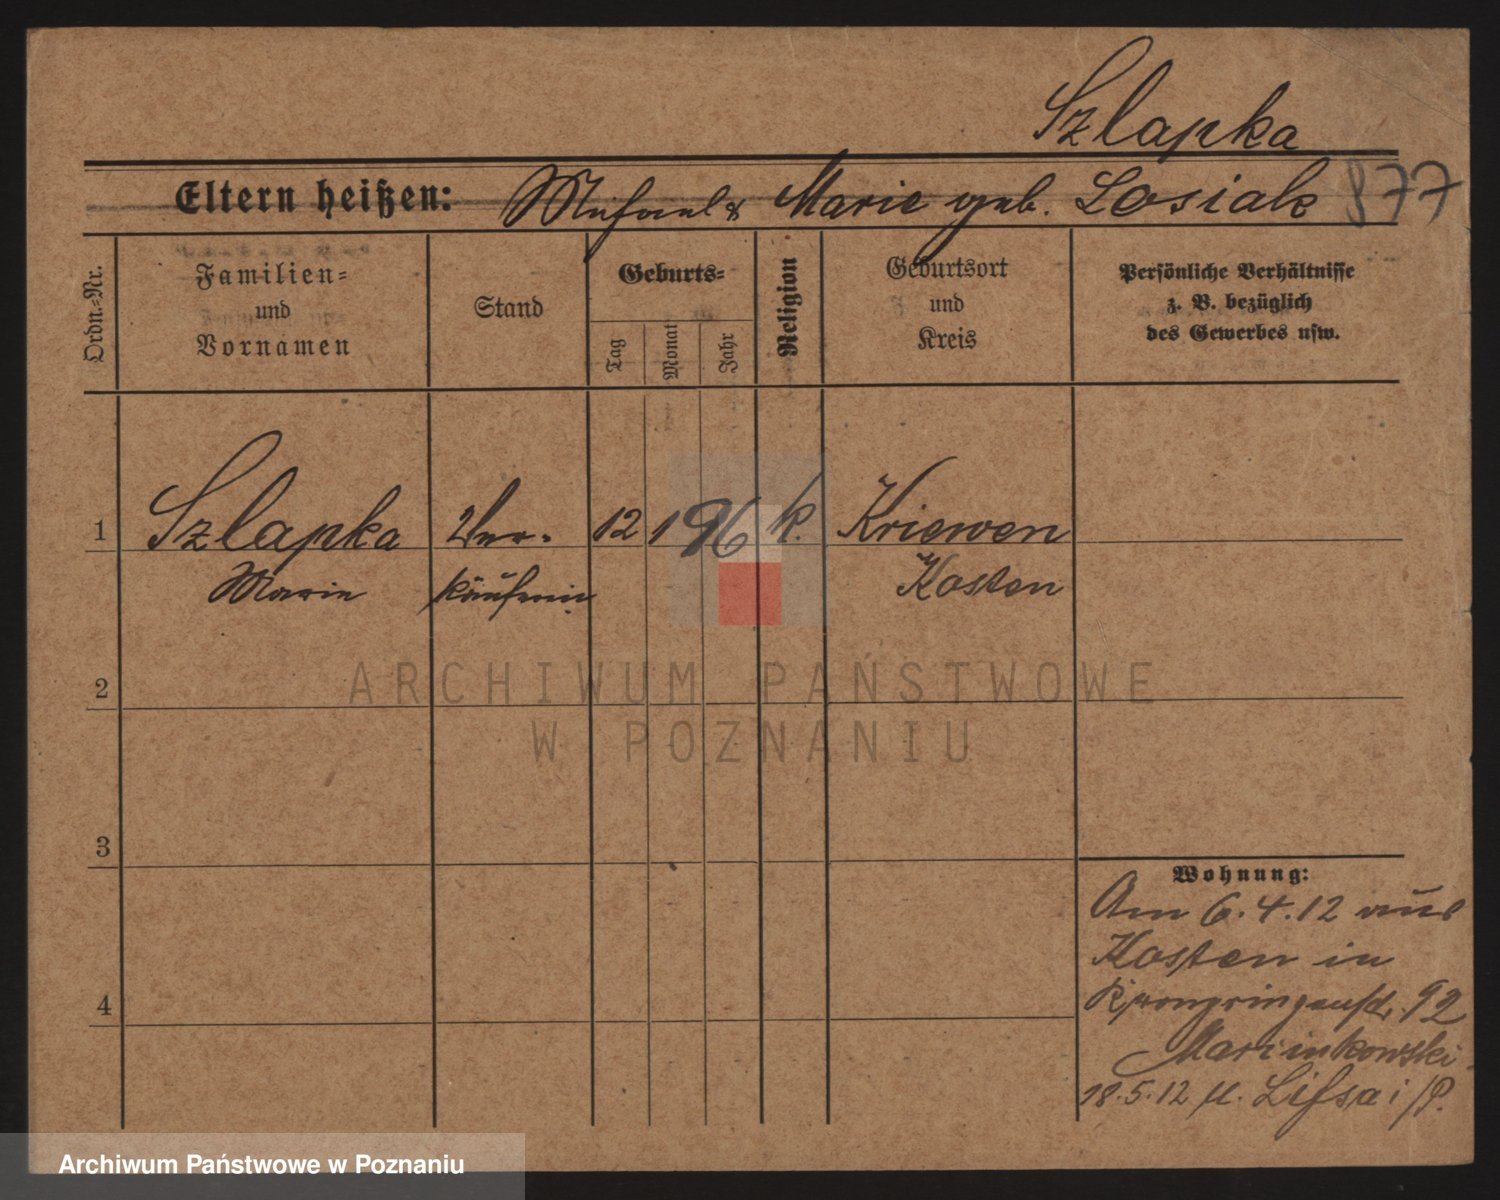 Szlapka
Eltern heißen: Michael & Marie geb. Losiak 877
Ordn.-Nr.
Familien-
und
Vornamen
Stand
Geburts-
Tag
Monat
Jahr
Religion
Geburtsort
und
Kreis
Persönliche Verhältnisse
z. B. bezüglich
des Gewerbes usw.
1 Szlapka Ver- 12 1 96 k. Kriewen
Marie käuferin Kosten
2
3
4
Wohnung:
Am 6.4.12 aus
Kosten in
Kronprinzenstr. 92
Marinkowski
18.5.12 n. Lissa i/P.
ARCHIWUM PAŃSTWOWE
W POZNANIU
Archiwum Państwowe w Poznaniu